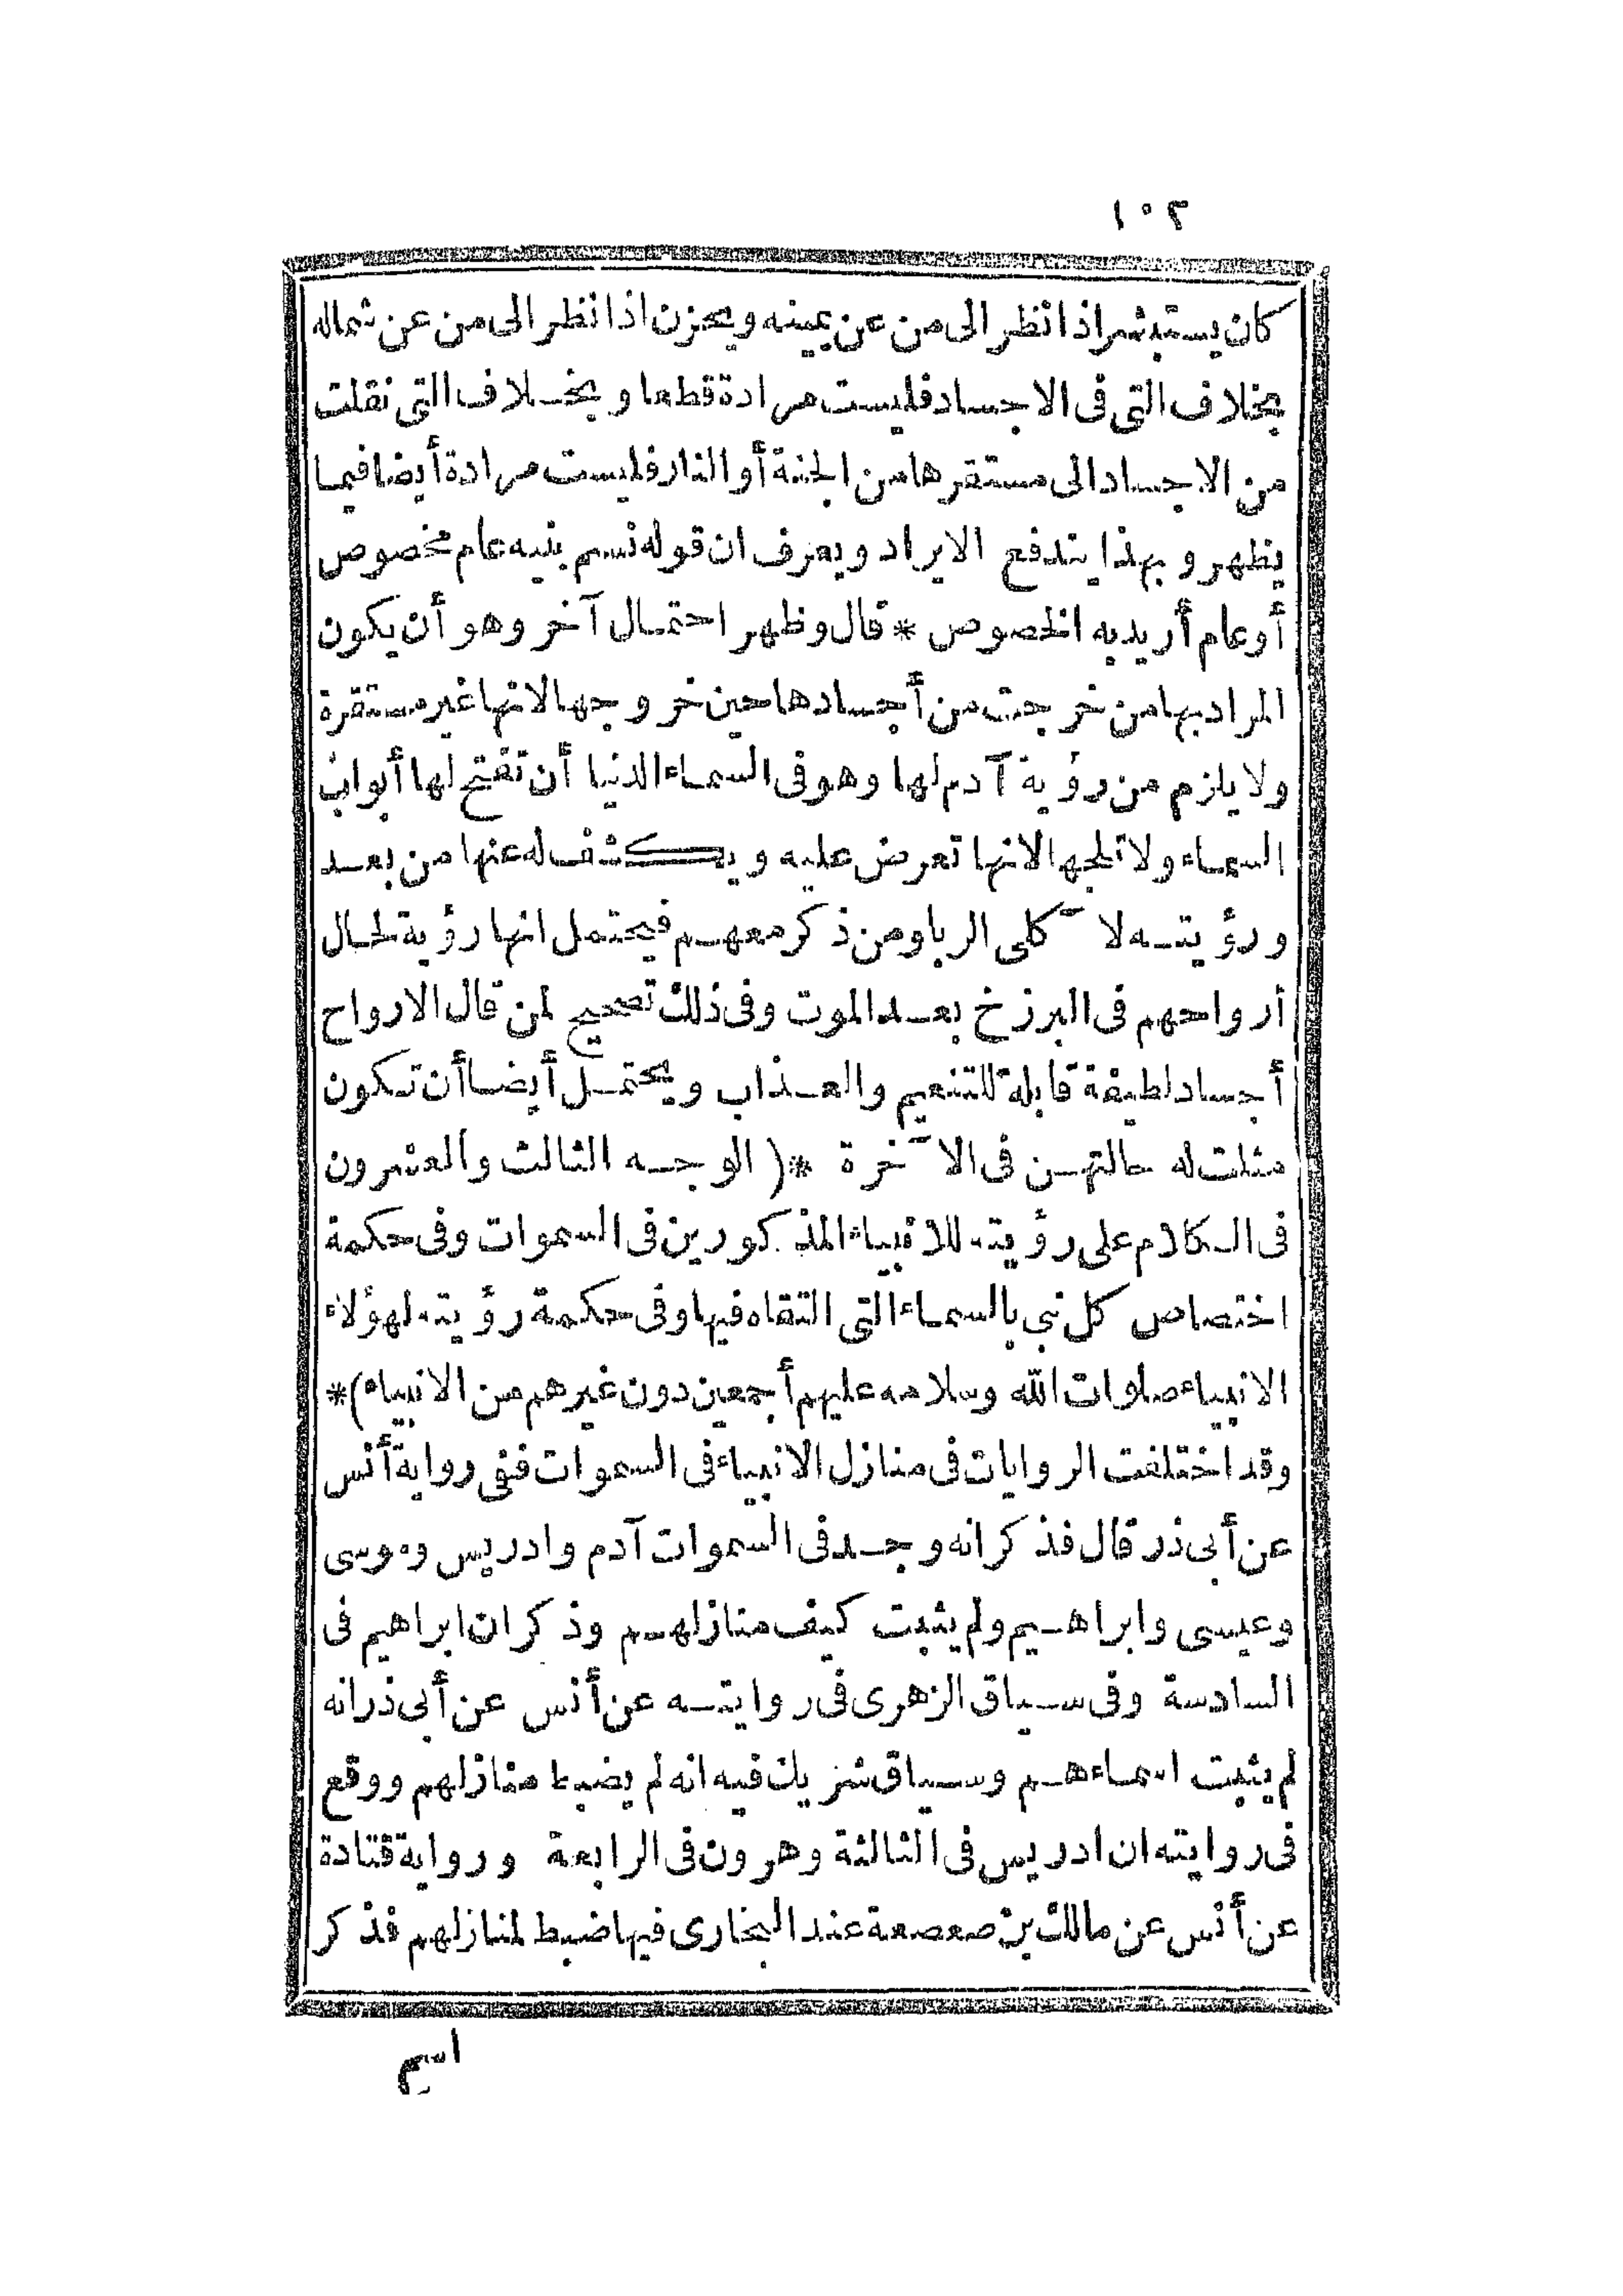 ١٠٢
كان يستبشر اذا نظر الى من عن يمينه ويحزن اذا نظر الى من عن شماله
بخلاف التى فى الاجساد فليست مرادة قطعا وبخلاف التى نقلت
من الاجساد الى مستقرها من الجنة أو النار فليست مرادة أيضا فيما
يظهر وبهذا يندفع الايراد ويعرف ان قوله نسم بنيه عام مخصوص
أو عام أريد به الخصوص * قال وظهر احتمال آخر وهو أن يكون
المراد بها من خرجت من أجسادها حين خروجها لانها غير مستقرة
ولا يلزم من رؤية آدم لها وهو فى السماء الدنيا أن تفتح لها أبواب
السماء ولا تلجها لانها تعرض عليه ويكشف له عنها من بعد
ورؤيته لآكلى الربا ومن ذكر معهم فيحتمل انها رؤية لحال
أرواحهم فى البرزخ بعد الموت وفى ذلك تصحيح لمن قال الارواح
أجساد لطيفة قابلة للتنعيم والعذاب ويحتمل أيضا أن تكون
مثلت له حالتهن فى الآخرة *( الوجه الثالث والعشرون
فى الكلام على رؤيته للانبياء المذكورين فى السموات وفى حكمة
اختصاص كل نبى بالسماء التى التقاه فيها وفى حكمة رؤيته لهؤلاء
الانبياء صلوات الله وسلامه عليهم أجمعين دون غيرهم من الانبياء)*
وقد اختلفت الروايات فى منازل الانبياء فى السموات ففى رواية أنس
عن أبى ذر قال فذكر انه وجد فى السموات آدم وادريس وموسى
وعيسى وابراهيم ولم يثبت كيف منازلهم وذكر ان ابراهيم فى
السادسة وفى سياق الزهرى فى روايته عن أنس عن أبى ذر انه
لم يثبت اسماءهم وسياق شريك فيه انه لم يضبط منازلهم ووقع
فى روايته ان ادريس فى الثالثة وهرون فى الرابعة ورواية قتادة
عن أنس عن مالك بن صعصعة عند البخارى فيها ضبط لمنازلهم فذكر
اسم